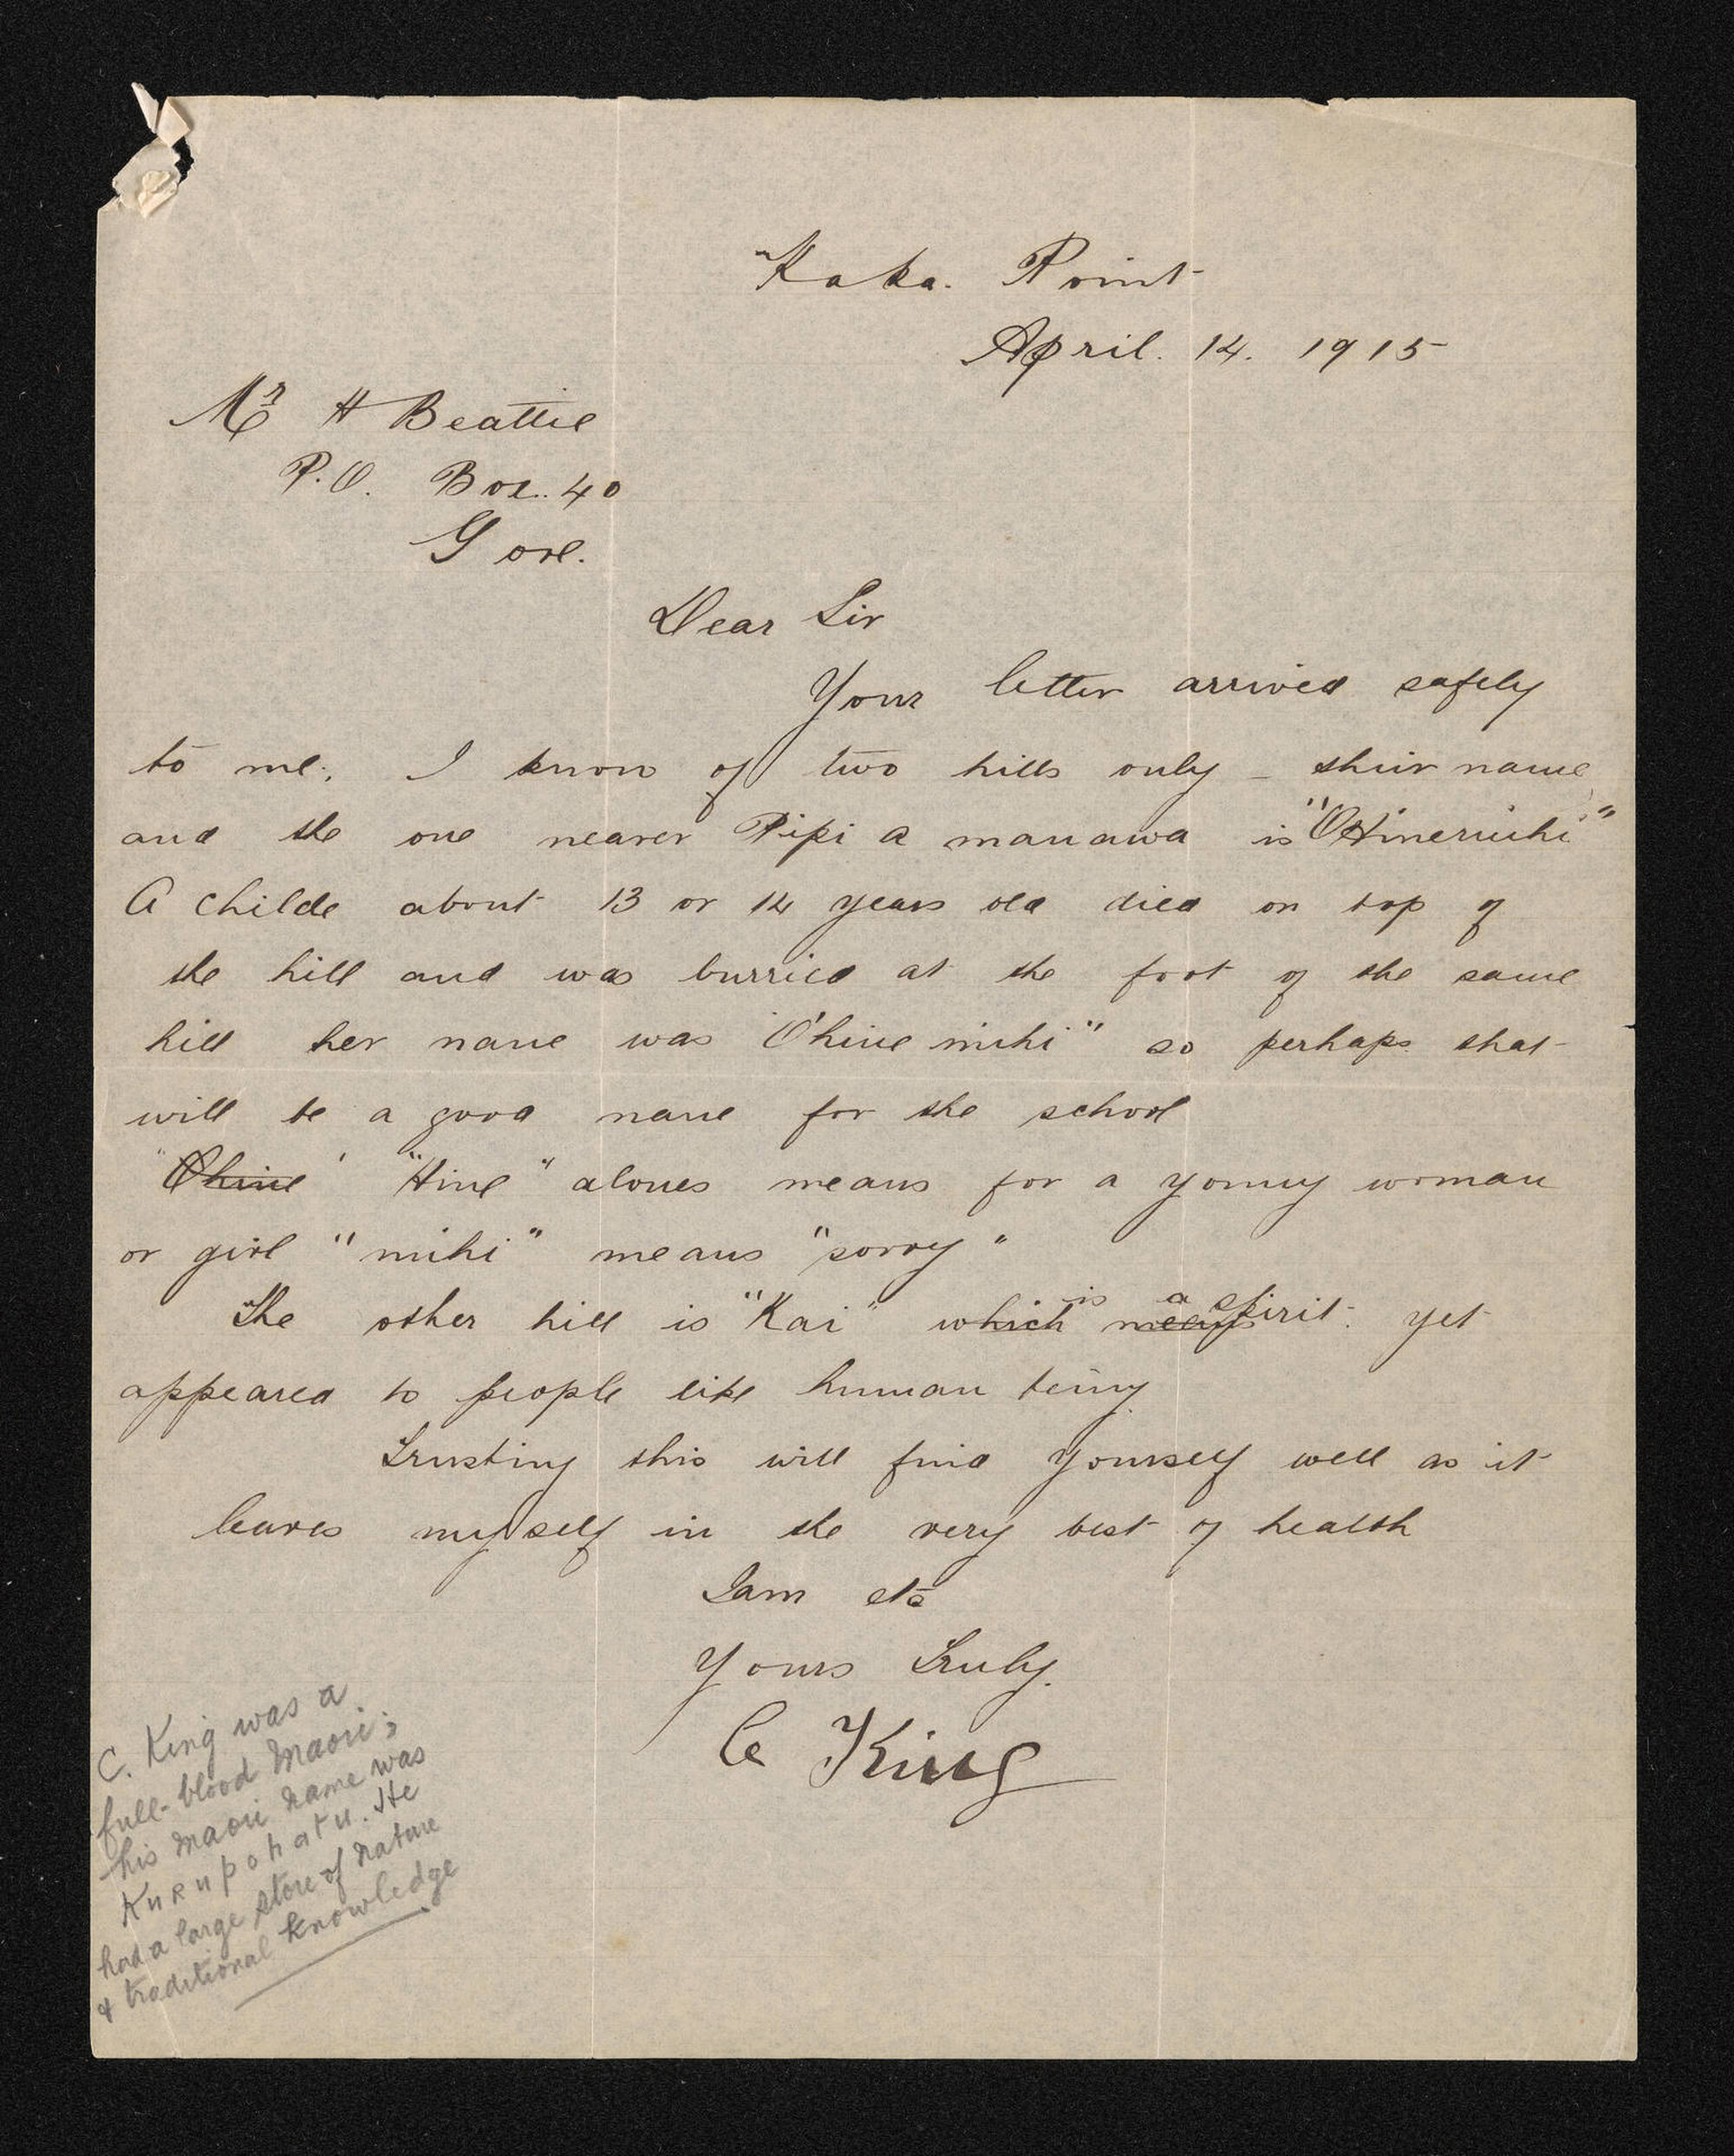 Kaka. Point
April. 14. 1915
Mr H Beattie
P.O. Box. 40
Gore.
Dear Sir
Your letter arrived safely
to me. I know of two hills only - their name
and the one nearer Pipi a manawa is "OHinemihi"
A childe about 13 or 14 years old died on top of
the hill and was burried at the foot of the same
hill her name was "O'hine mihi" so perhaps that
will be a good name for the school
"Ohine" "Hine" alones means for a young woman
or girl "mihi" means "sorry"
The other hill is "Kai" which means is a spirit. yet
appeared to people like human being.
Trusting this will find yourself well as it
leaves myself in the very best of health
I am etc
Yours Truly.
C King
C. King was a
full-blood Maori;
his Maori name was
Kurupohatu. He
had a large store of nature
& traditional knowledge